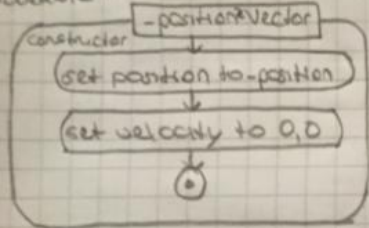 -position:Vector
constructor
set position to -position
set velocity to 0,0